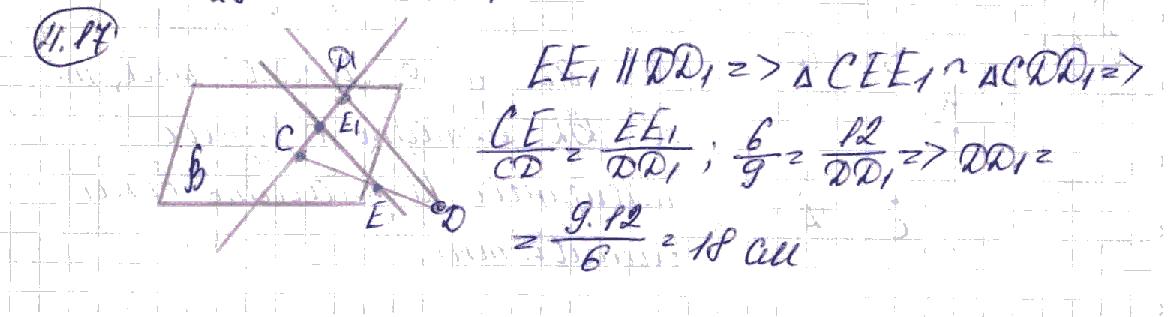 4.17
D₁
E₁
C
β
E
D
EE₁ || DD₁ => △CEE₁ ~ △CDD₁ =>
CE/CD = EE₁/DD₁ ; 6/9 = 12/DD₁ => DD₁ =
= 9·12/6 = 18 см